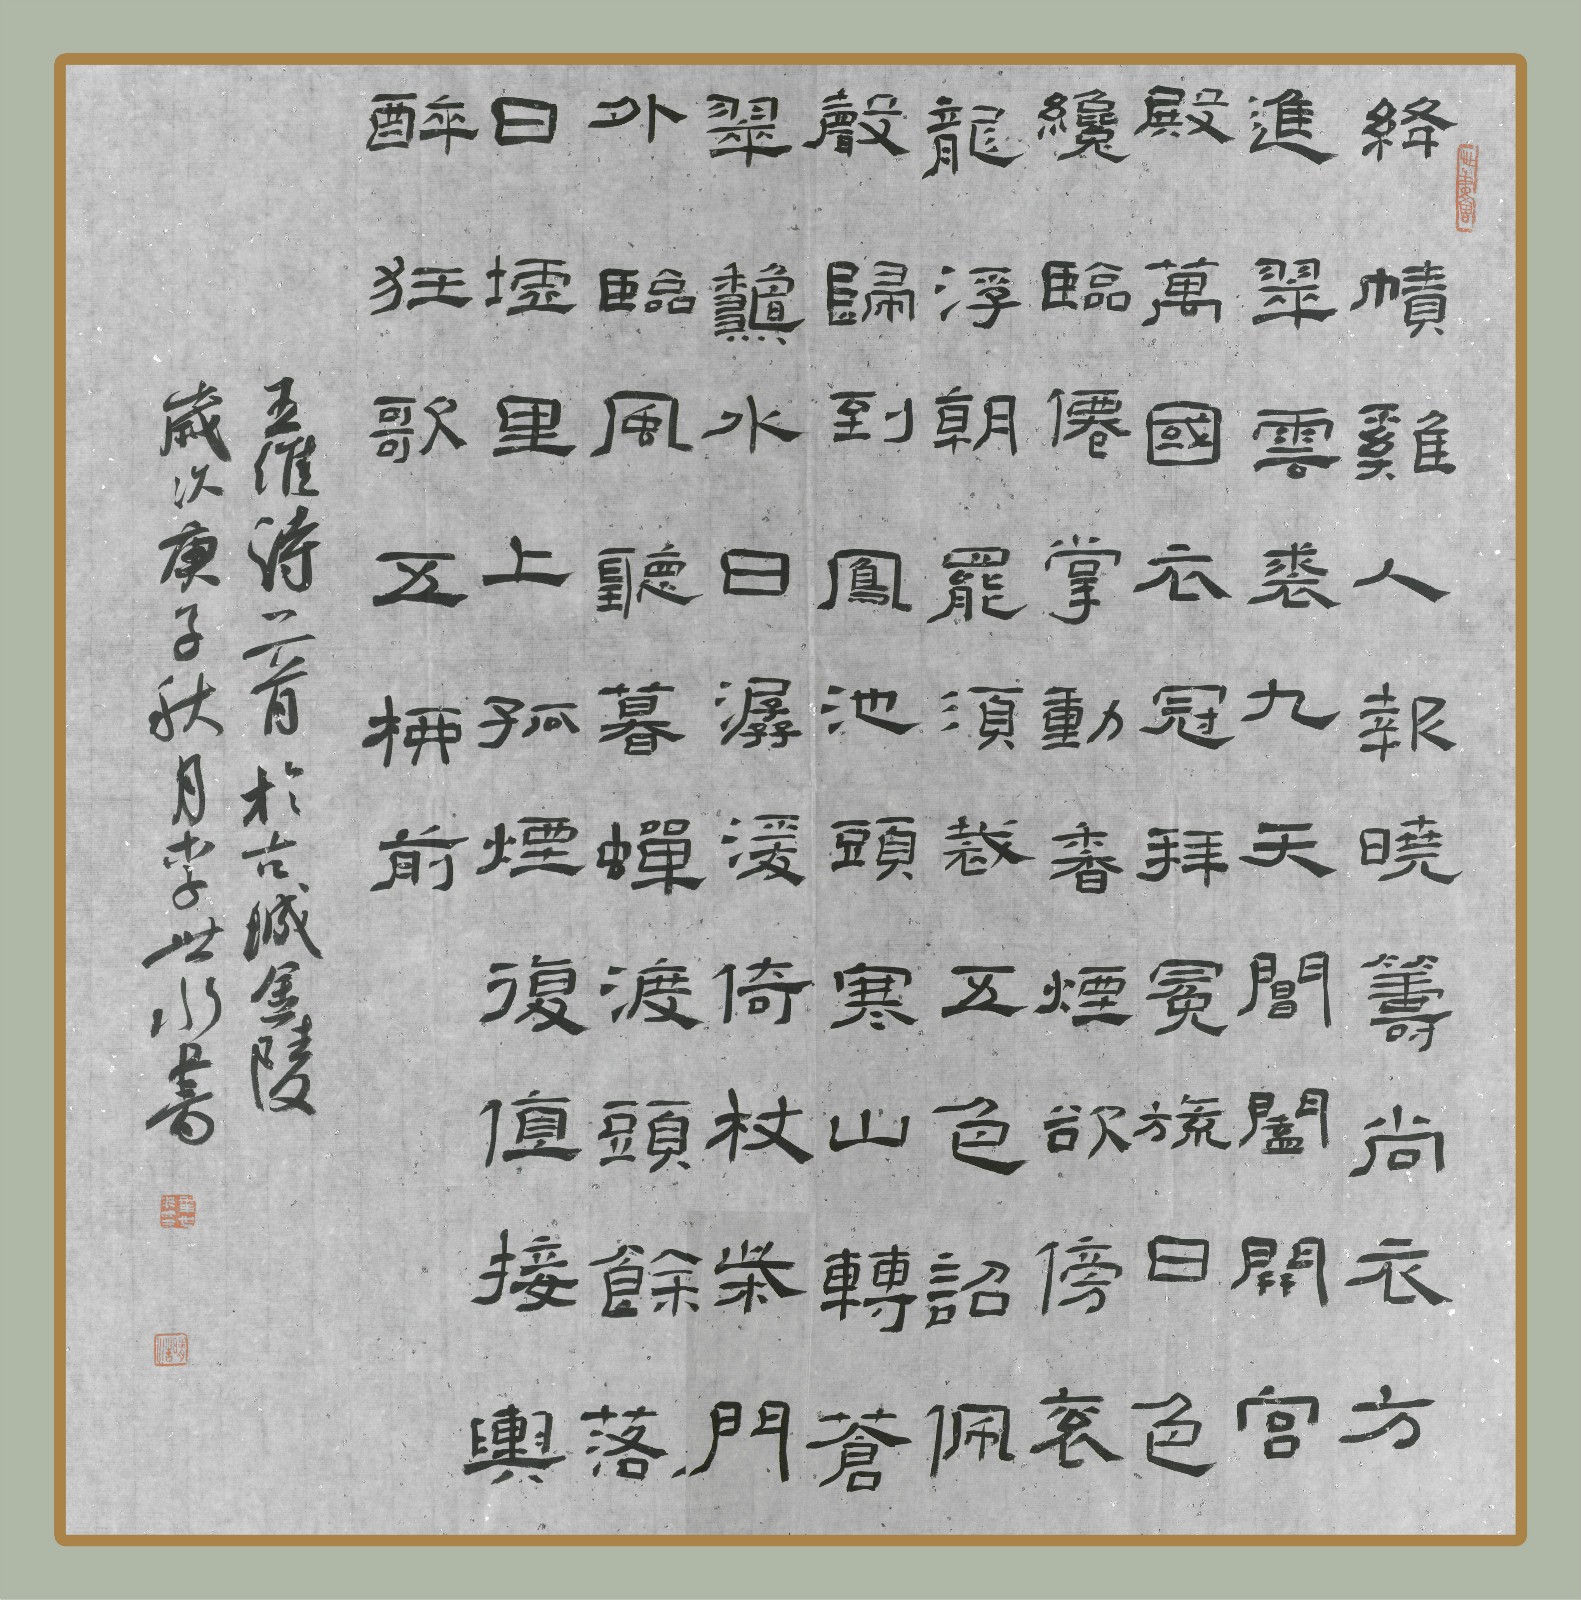 絳幘雞人報曉籌尚衣方
進翠雲裘九天閶闔開宮
殿萬國衣冠拜冕旒日色
纔臨僊掌動香煙欲傍袞
龍浮朝罷須裁五色詔佩
聲歸到鳳池頭寒山轉蒼
翠龝水日潺湲倚杖柴門
外臨風聽暮蟬渡頭餘落
日墟里上孤煙復值接輿
醉狂歌五柳前
王維詩二首於古城金陵
歲次庚子秋月李世書